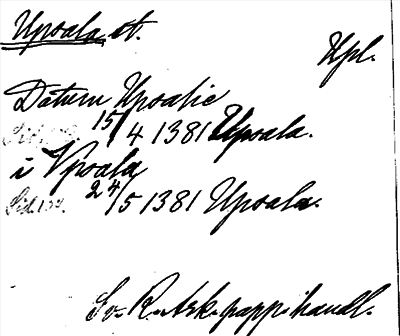 Upsala, st.
Upl.
Datum Upsalie
15/4 1381 Upsala.
i Vpsala
24/5 1381 Upsala.
Sv. R. Ark. papp. handl.